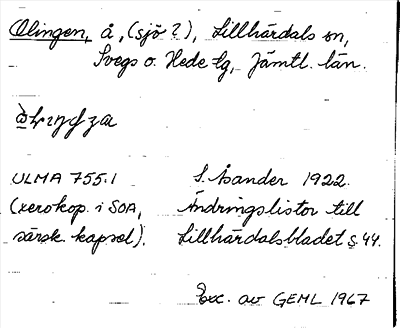 Olingen, å, (sjö?), Lillhärdals sn,
Svegs o. Hede tg, Jämtl. län.
ULMA 755:1 S. Åsander 1922.
(xerokop. i SOA, Ändringslistor till
särsk. kapsel). Lillhärdalsbladet s. 44.
Exc. av GEML 1967